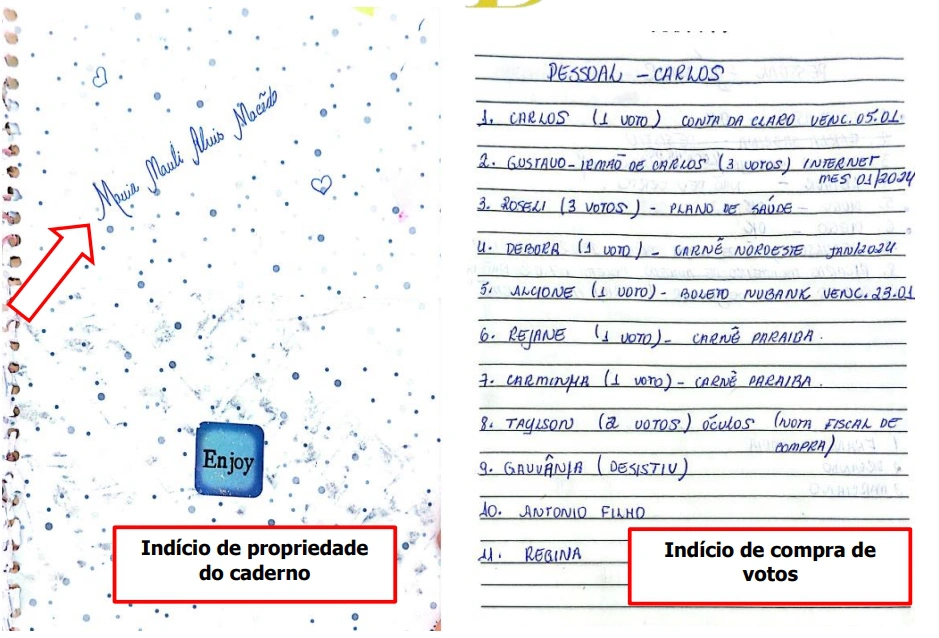 Maria Mauli Alves Macêdo
Enjoy
Indício de propriedade
do caderno
PESSOAL - CARLOS
1. CARLOS (1 VOTO) CONTA DA CLARO VENC. 05.01.
2. GUSTAVO - IRMÃO DE CARLOS (3 VOTOS) INTERNET
MES 01/2024
3. ROSELI (3 VOTOS) - PLANO DE SAÚDE -
4. DEBORA (1 VOTO) - CARNÊ NORDESTE JAN/2024
5. ALCIONE (1 VOTO) - BOLETO NUBANK VENC. 23.01
6. REJANE (1 VOTO) - CARNÊ PARAIBA.
7. CARMINHA (1 VOTO) - CARNÊ PARAIBA.
8. TAYLSON (2 VOTOS) ÓCULOS (NOTA FISCAL DE
COMPRA)
9. GAUVÂNIA (DESISTIU)
10. ANTONIO FILHO
11. REGINA
Indício de compra de
votos